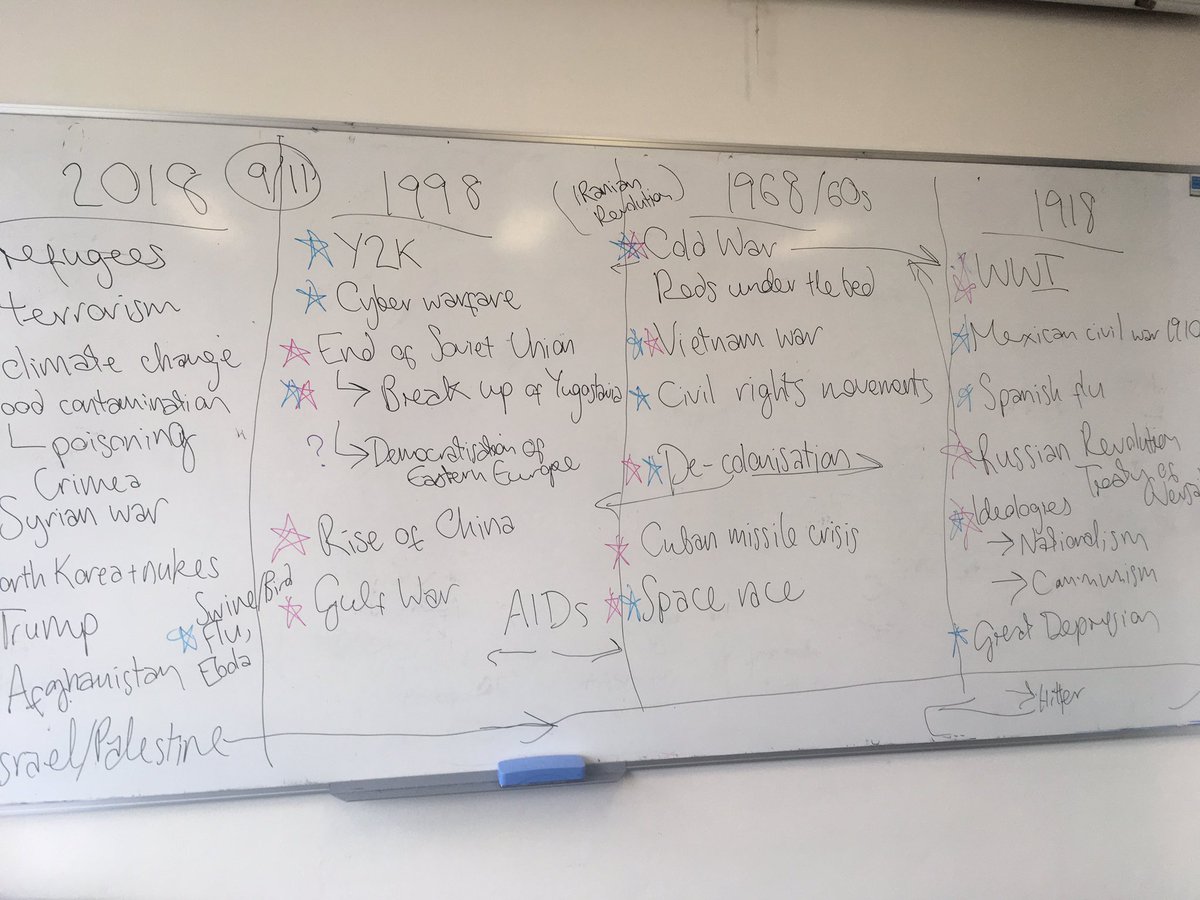 2018
refugees
terrorism
climate change
ood contamination
poisoning
Crimea
Syrian war
orth Korea + nukes
Trump
Afghanistan
srael/Palestine
Swine/Bird
Flu,
Ebola
9/11
1998
Y2K
Cyber warfare
End of Soviet Union
Break up of Yugoslavia
?
Democratisation of
Eastern Europe
Rise of China
Gulf War
AIDs
(Iranian
Revolution)
1968/60s
Cold War
Reds under the bed
Vietnam war
Civil rights movements
De-colonisation
Cuban missile crisis
Space race
1918
WWI
Mexican civil war 1910
Spanish flu
Russian Revolution
Treaty of
Ideologies
Nationalism
Communism
Great Depression
Hitler